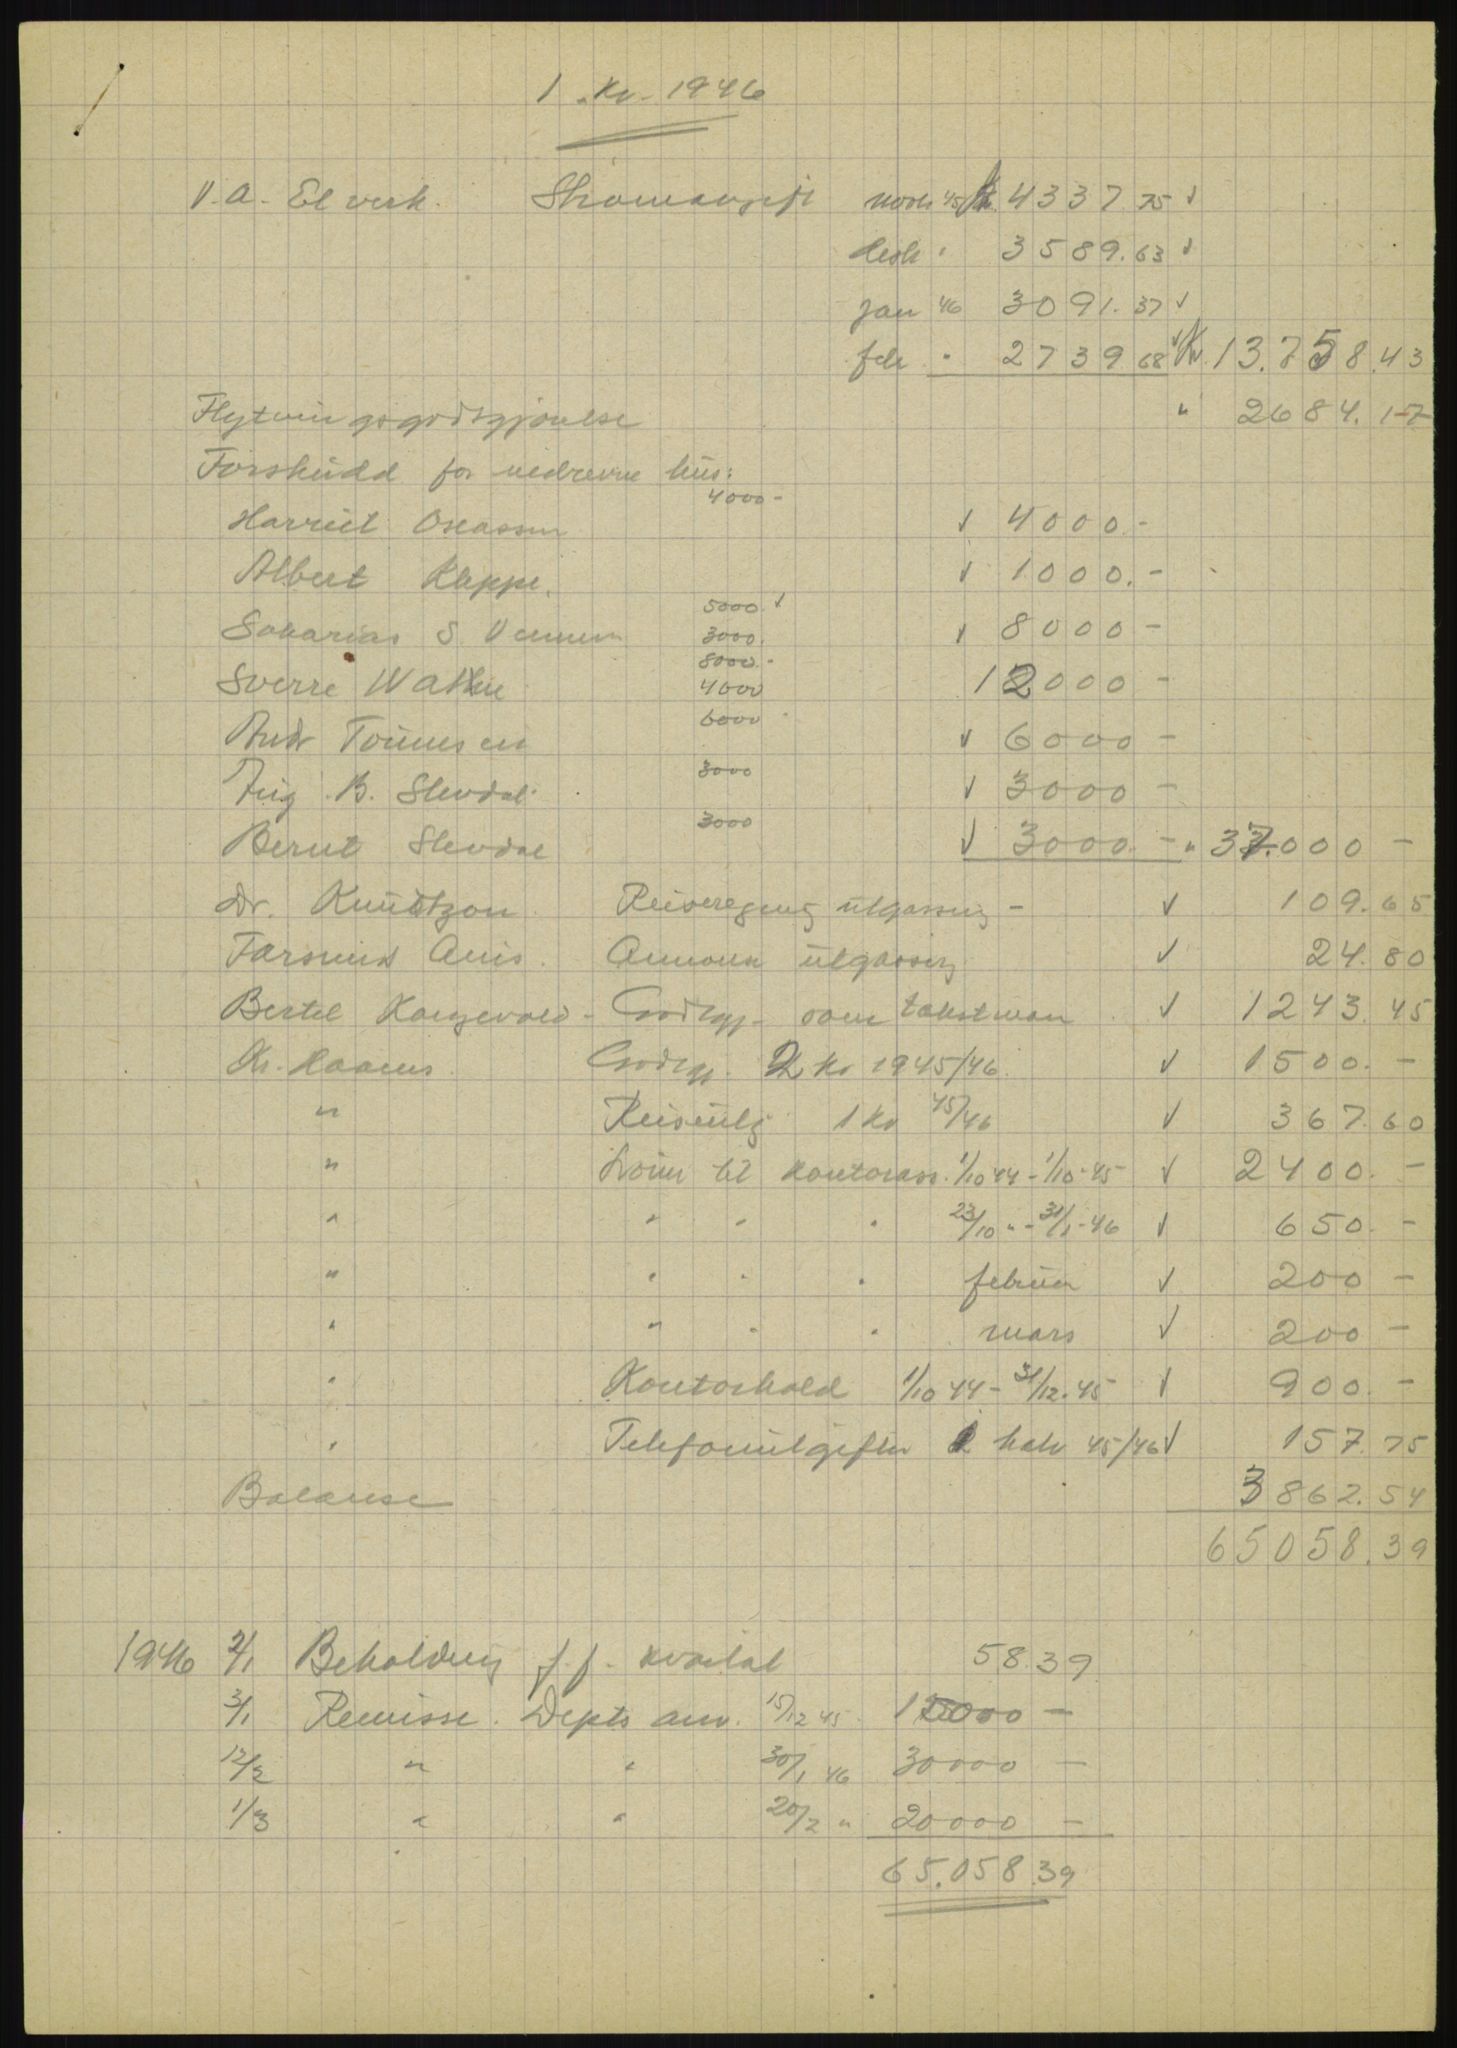 1. Kv. 1946
V.A. Elverk. Strømavgift novb 45 Kr. 4337.75 √
desb " 3589.63 √
jan 46 3091.37 √
feb. " 2739.68 √ Kr. 13.758.43
Flytningsgodtgjørelse " 2684.17
Forskudd for nedrevne hus:
4000-
Harriet Oseassen √ 4000.-
Albert Kleppe. √ 1000.-
5000. √
Sakarias S. 3000. √ 8000-
8000.-
Sverre Wathne 4000 12000-
6000
Andr Tønnesen √ 6000-
3000
B. Slevdal √ 3000-
3000
Bernt Slevdal √ 3000.- " 37.000-
Dr. Knudtzon Reiseregning utgassing - √ 109.65
Farsund Avis. Annonse utgassing √ 24.80
Bertel - Godtgj. som takstman √ 1243.45
Kr. Haaens Godtgj. 2 kv 1945/46 √ 1500.-
" Reiseutg 1 kv 45/46 √ 367.60
" Lønn til kontorass. 1/10 44 - 1/10-45 √ 2400.-
" " " " 23/10 " - 31/1-46 √ 650.-
" " " " februar √ 200-
" " " " mars √ 200-
" Kontorhold 1/10 44 - 31/12.45 √ 900.-
" Telefonutgifter 2 halv 45/46 √ 157.75
Balanse 3862.54
65058.39
1946 2/1 Beholdning f.f. kvartal 58.39
3/1 Remisse. Depts anv. 15/12 45. 15000-
12/2 " " 30/1 46 30000-
1/3 " " 20/2 " 20000-
65.058.39